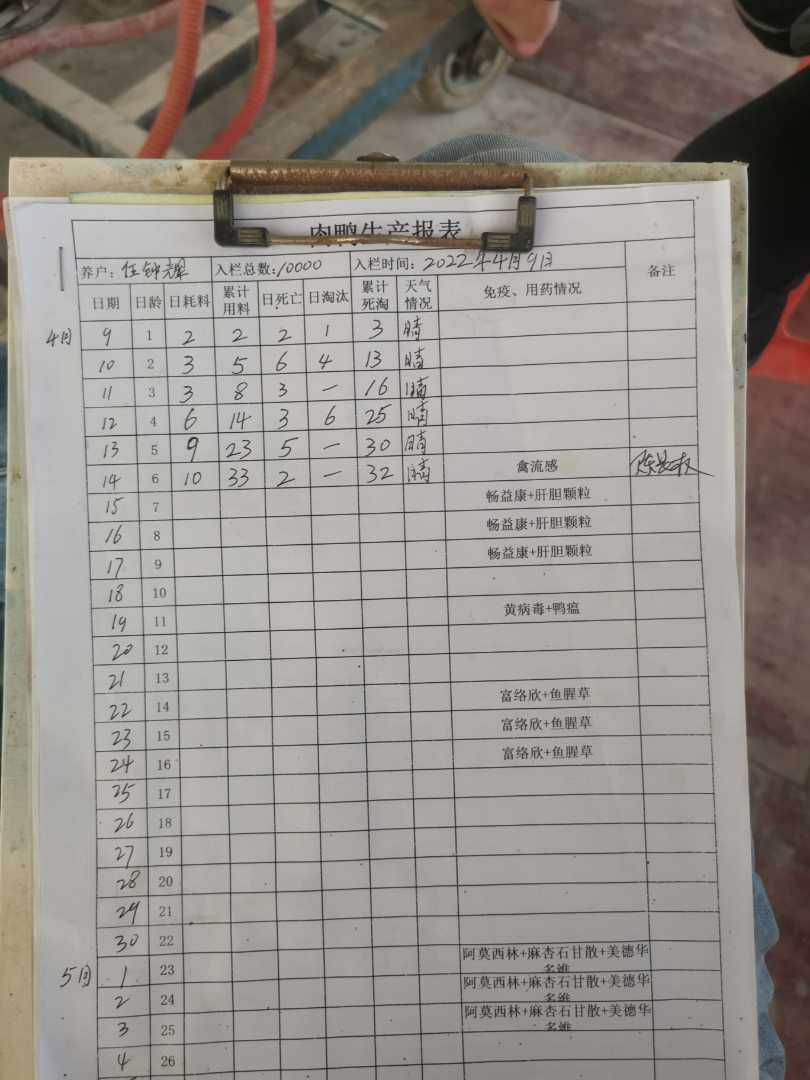 肉鸭生产报表
养户: 任钟 入栏总数: 10000 入栏时间: 2022年4月9日 备注
日期 日龄 日耗料 累计用料 日死亡 日淘汰 累计死淘 天气情况 免疫、用药情况
4月 9 1 2 2 2 1 3 晴
10 2 3 5 6 4 13 晴
11 3 3 8 3 — 16 晴
12 4 6 14 3 6 25 晴
13 5 9 23 5 — 30 晴
14 6 10 33 2 — 32 晴 禽流感
15 7 畅益康+肝胆颗粒
16 8 畅益康+肝胆颗粒
17 9 畅益康+肝胆颗粒
18 10
19 11 黄病毒+鸭瘟
20 12
21 13
22 14 富络欣+鱼腥草
23 15 富络欣+鱼腥草
24 16 富络欣+鱼腥草
25 17
26 18
27 19
28 20
29 21
30 22
5月 1 23 阿莫西林+麻杏石甘散+美德华多维
2 24 阿莫西林+麻杏石甘散+美德华多维
3 25 阿莫西林+麻杏石甘散+美德华多维
4 26